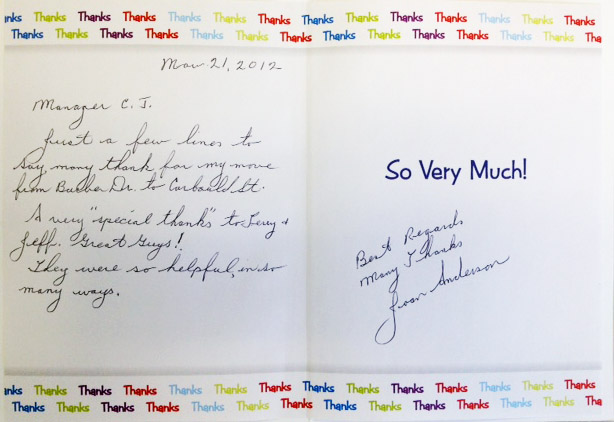 Thanks Thanks Thanks Thanks Thanks Thanks Thanks
Thanks Thanks Thanks Thanks Thanks Thanks Thanks
Mar 21, 2012
Manager C. J.
Just a few lines to
say, many thank for my move
from Dr. to St.
A very "special thanks" to &
Jeff. Great Guys!
They were so helpful, in so
many ways.
Thanks Thanks Thanks Thanks Thanks Thanks Thanks
Thanks Thanks Thanks Thanks Thanks Thanks Thanks
Thanks Thanks Thanks Thanks Thanks Thanks Thanks
Thanks Thanks Thanks Thanks Thanks Thanks
So Very Much!
Best Regards
Many Thanks
Joan Anderson
Thanks Thanks Thanks Thanks Thanks Thanks Thanks
Thanks Thanks Thanks Thanks Thanks Thanks